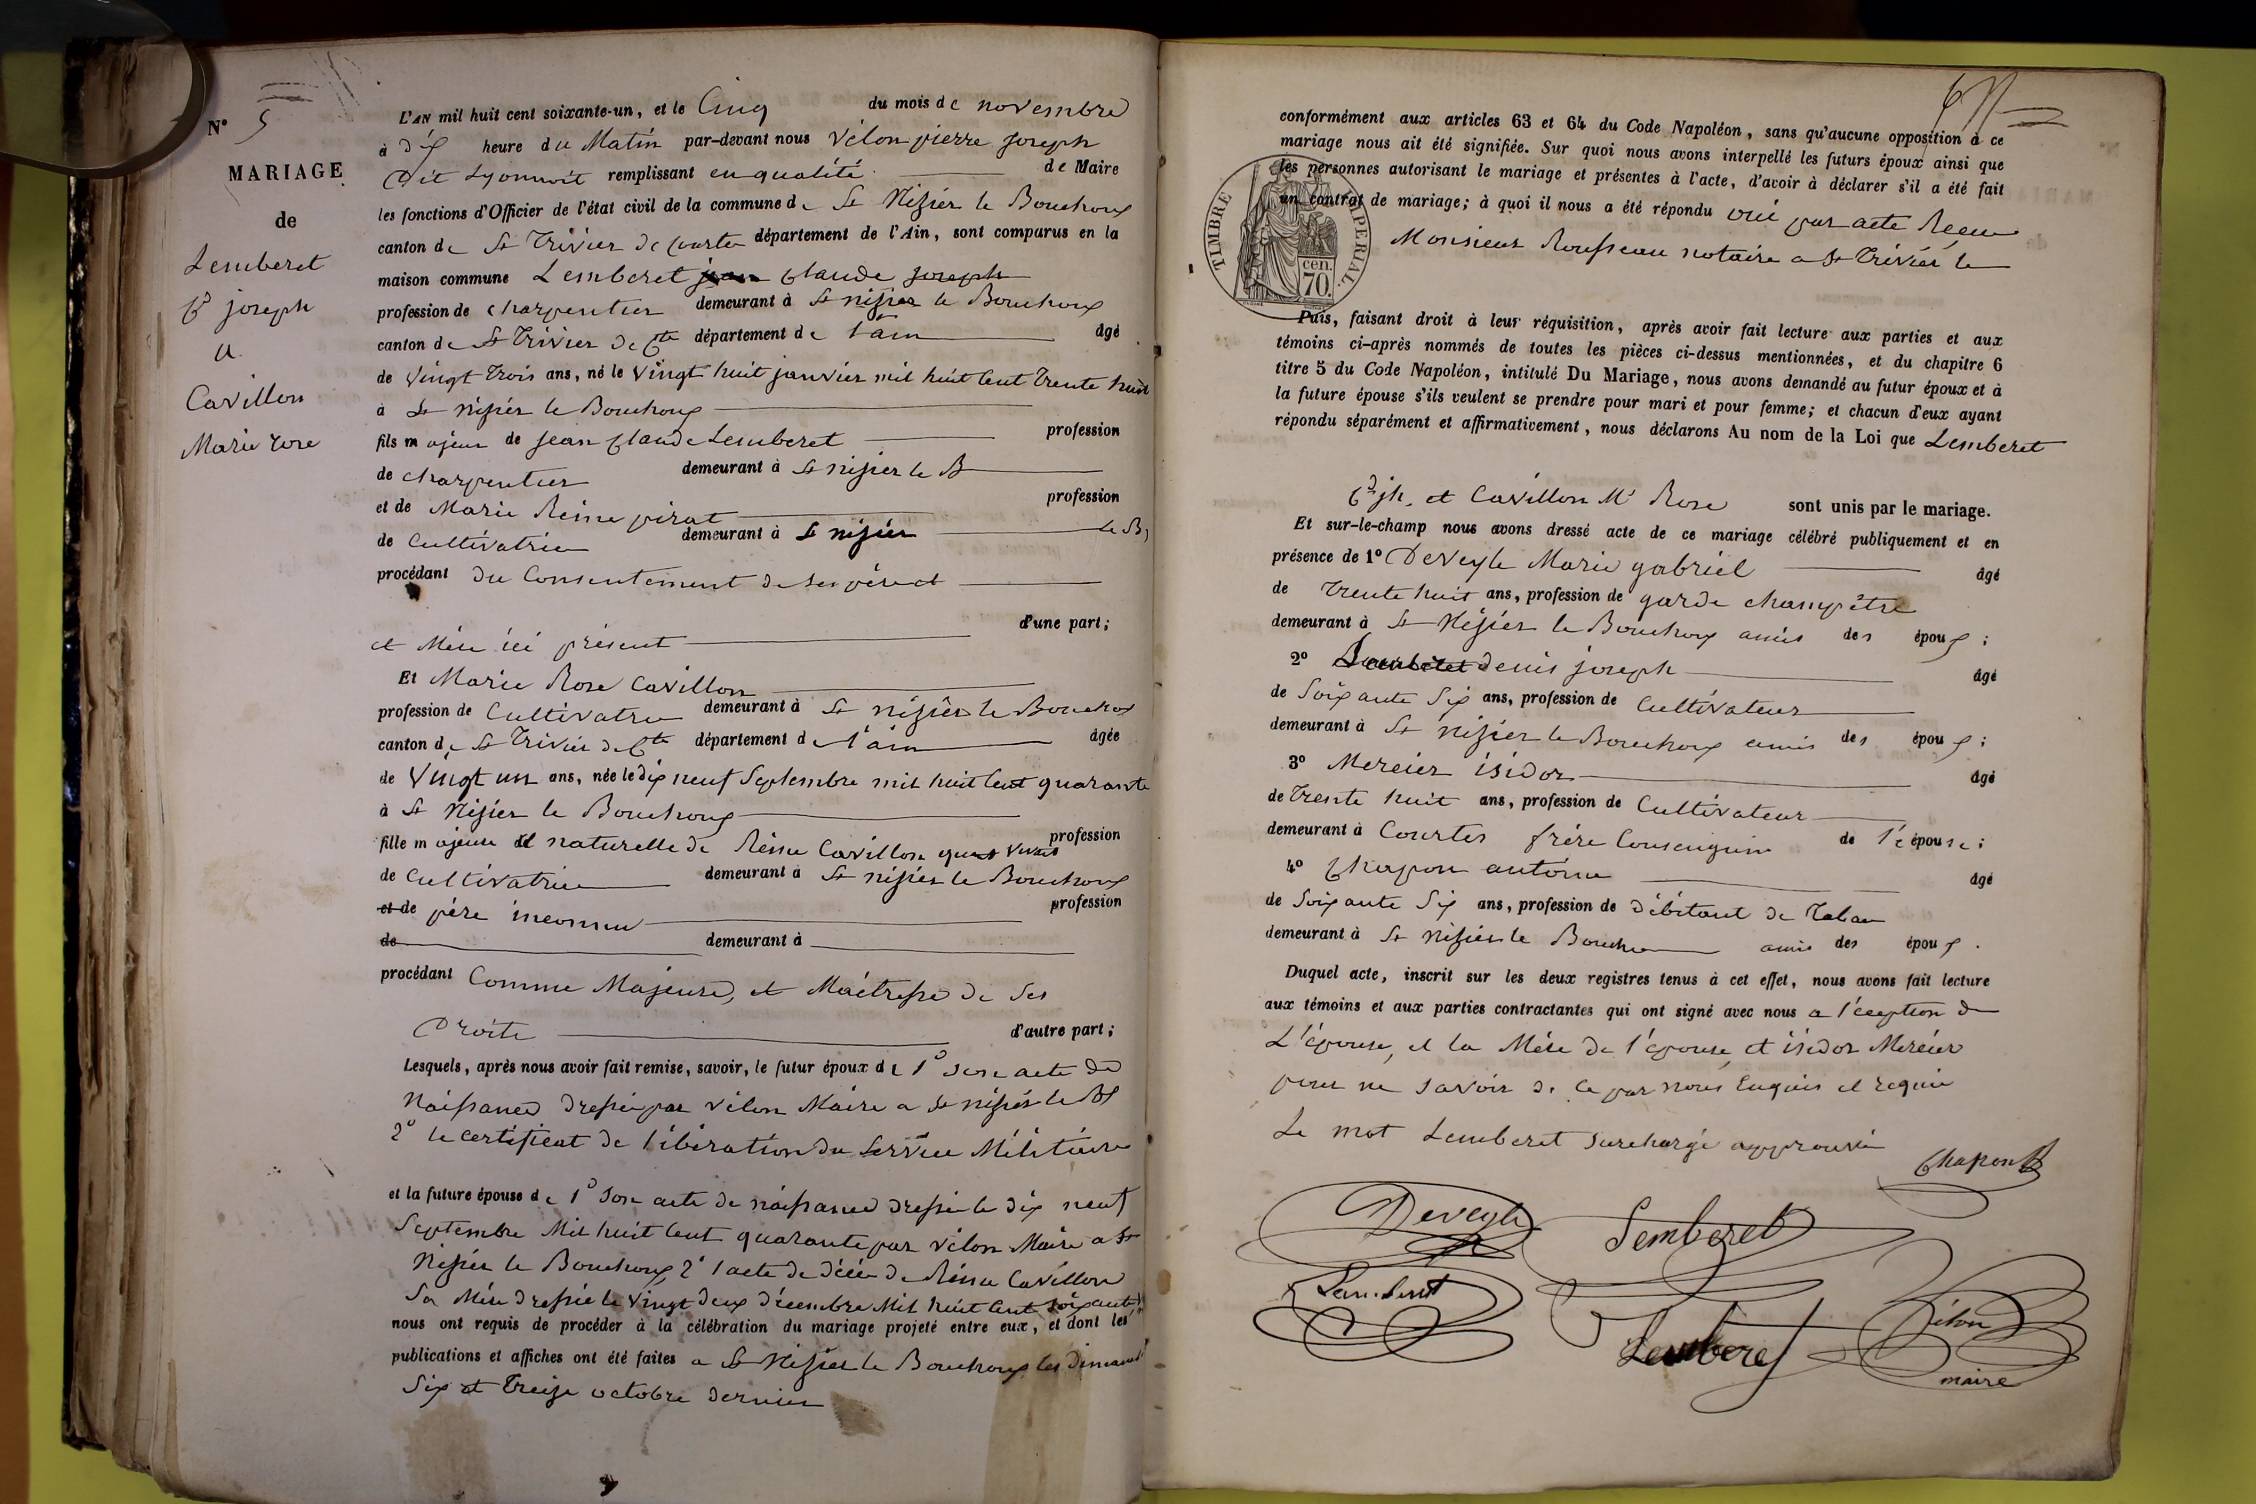 N° 5
MARIAGE
de
Lemberet
Cde joseph
a
Cavillon
Marie rose
L'AN mil huit cent soixante-un, et le Cinq du mois de novembre
à dix heure du Matin par-devant nous Vélon pierre joseph
dit Lyonnoit remplissant en qualité de Maire
les fonctions d'Officier de l'état civil de la commune de St Nizier le Bouchoux
canton de St Trivier de Courte département de l'Ain, sont comparus en la
maison commune Lemberet claude joseph
profession de charpentier demeurant à St nizier le Bouchoux
canton de St Trivier de Cte département de l'ain âgé
de Vingt trois ans, né le Vingt huit janvier mil huit Cent Trente huit
à St nizier le Bouchoux
fils majeur de jean Claude Lemberet profession
de charpentier demeurant à St nizier le B
et de Marie Reine pirat profession
de Cultivatrice demeurant à St nizier le B
procédant du Consentement de ses père et
d'une part;
et Mère ici présent
Et Marie Rose Cavillon
profession de Cultivatrice demeurant à St nizier le Bouchox
canton de St Trivier de Cte département de l'ain âgée
de Vingt un ans, née le dix neuf Septembre mil huit Cent quarante
à St Nizier le Bouchoux
fille majeure et naturelle de Reine Cavillon profession
de Cultivatrice demeurant à St nizier le Bouchoux
et de père inconnu profession
de demeurant à
procédant Comme Majeure, et Maétresse de Ses
Droits d'autre part;
Lesquels, après nous avoir fait remise, savoir, le futur époux de 1° son acte de
Naissance dressée par Vélon Maire a St nizier le B
2° le certificat de libération du Service Militaire
et la future épouse de 1° Son acte de naissance dressée le dix neuf
Septembre Mil huit Cent quarante par Vélon Maire a St
Nizier le Bouchoux 2° l'acte de décés de Reine Cavillon
Sa Mère dressée le Vingt deux décembre Mil huit Cent soixante
nous ont requis de procéder à la célébration du mariage projeté entre eux, et dont les
publications et affiches ont été faites a St Nizier le Bouchoux les dimanch
Six et Treize octobre dernier
conformément aux articles 63 et 64 du Code Napoléon, sans qu'aucune opposition à ce
mariage nous ait été signifiée. Sur quoi nous avons interpellé les futurs époux ainsi que
les personnes autorisant le mariage et présentes à l'acte, d'avoir à déclarer s'il a été fait
un contrat de mariage; à quoi il nous a été répondu oui par acte Recu
Monsieur Rousseau notaire a St Trivier le
TIMBRE IMPERIAL.
70. cen.
Puis, faisant droit à leur réquisition, après avoir fait lecture aux parties et aux
témoins ci-après nommés de toutes les pièces ci-dessus mentionnées, et du chapitre 6
titre 5 du Code Napoléon, intitulé Du Mariage, nous avons demandé au futur époux et à
la future épouse s'ils veulent se prendre pour mari et pour femme; et chacun d'eux ayant
répondu séparément et affirmativement, nous déclarons Au nom de la Loi que Lemberet
Cde jh. et Cavillon Me Rose sont unis par le mariage.
Et sur-le-champ nous avons dressé acte de ce mariage célébré publiquement et en
présence de 1° Deveyle Marie gabriel âgé
de Trente huit ans, profession de garde champêtre
demeurant à St Nizier le Bouchoux amis des époux;
2° Lemberet denis joseph âgé
de Soixante Six ans, profession de Cultivateur
demeurant à St nizier le Bouchoux amis des époux;
3° Mercier isidor âgé
de Trente huit ans, profession de Cultivateur
demeurant à Courtes frére Consenguin de l'épouse;
4° Chapon antoine âgé
de Soixante Six ans, profession de débitant de Tabac
demeurant à St nizier le Bouchou amis des époux.
Duquel acte, inscrit sur les deux registres tenus à cet effet, nous avons fait lecture
aux témoins et aux parties contractantes qui ont signé avec nous a l'éception de
L'épouse, et la Mére de l'épouse et isidor Mercier
pour ne savoir de ce par nous Enquis et requis
Le mot Lemberet surchargé approuvé
Chapon
Deveyle Lemberet
Lemberet
Lemberet Vélon
maire